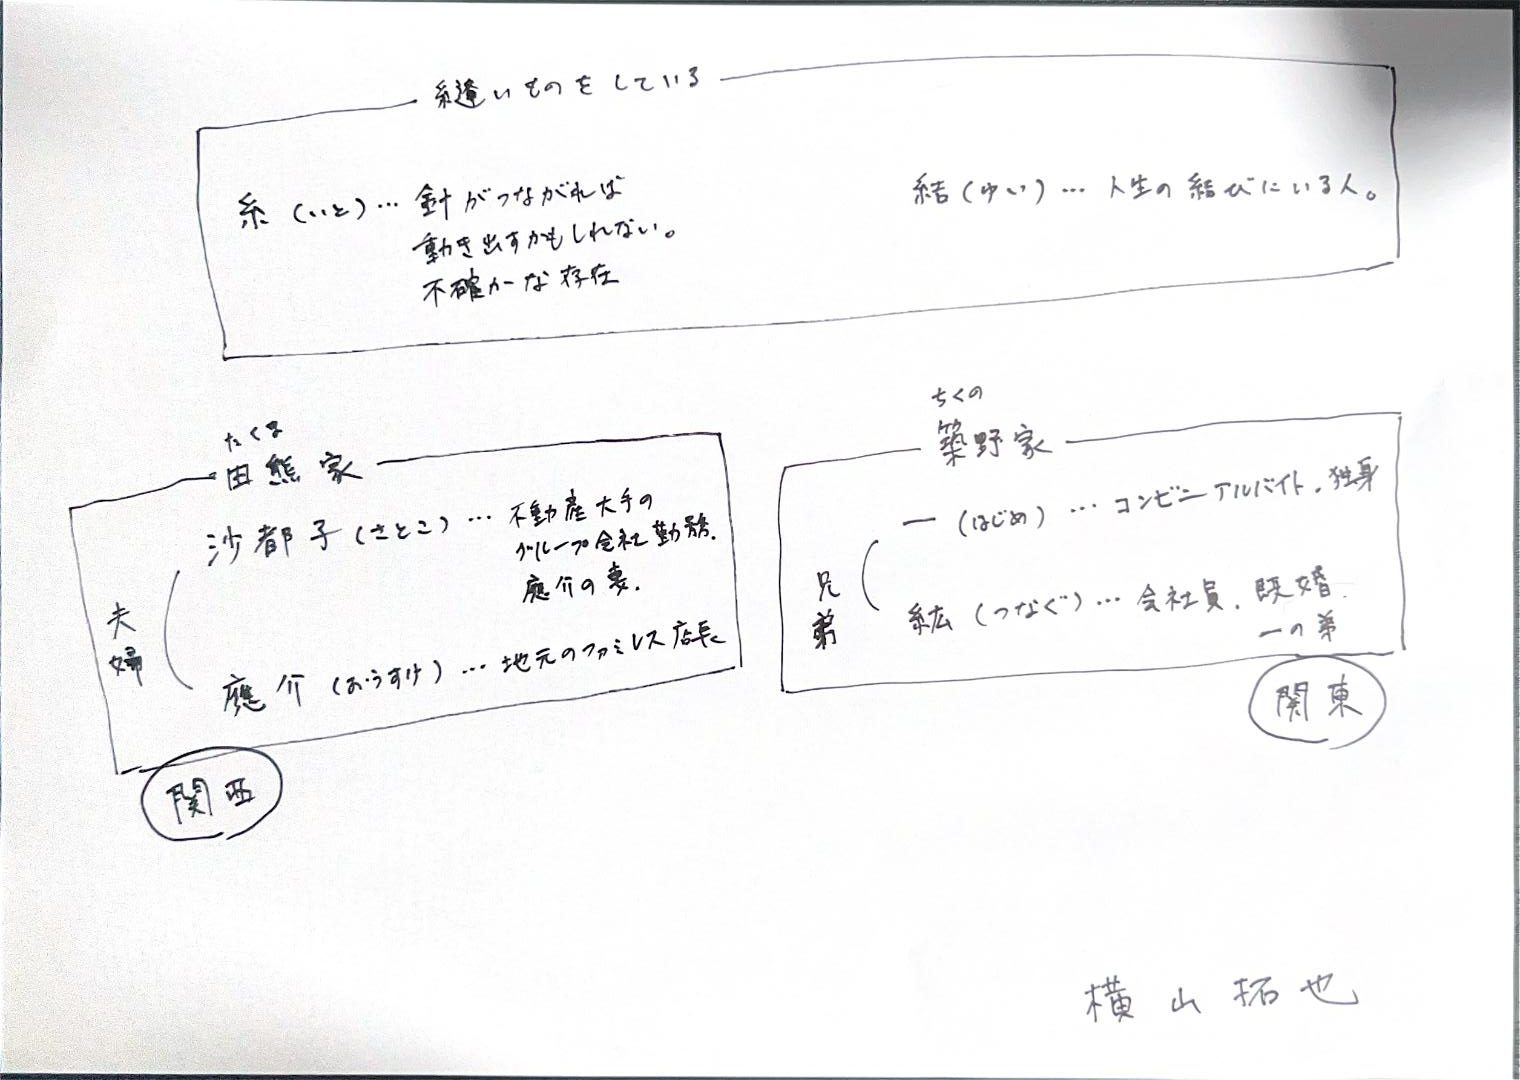 縫いものをしている
糸（いと）… 針がつながれば
動き出すかもしれない。
不確かな存在
結（ゆい）… 人生の結びにいる人。
たくま
田熊家
沙都子（さとこ）… 不動産大手の
グループ会社勤務.
應介の妻.
夫婦
應介（おうすけ）… 地元のファミレス店長
関西
ちくの
築野家
一（はじめ）… コンビニアルバイト. 独身
兄弟
紘（つなぐ）… 会社員. 既婚.
一の弟
関東
横山拓也